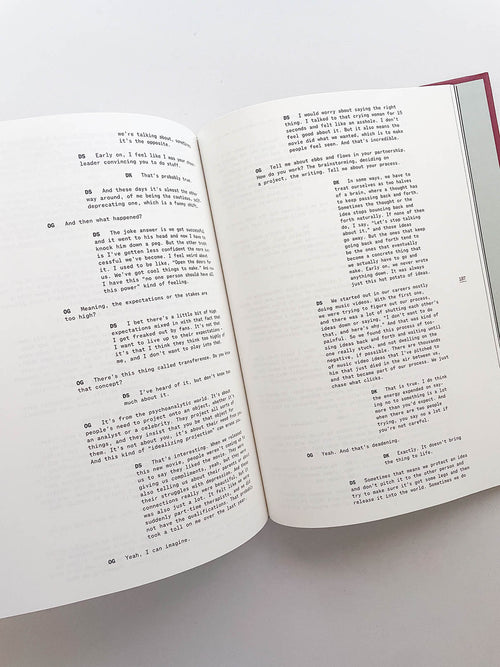 we're talking about, sometimes
it's the opposite.
DS Early on, I feel like I was your cheer
leader convincing you to do stuff.
DK That's probably true.
DS And these days it's almost the other
way around, of me being the cautious, self-
deprecating one, which is a funny shift.
OG And then what happened?
DS The joke answer is we got successful
and it went to his head and now I have to
knock him down a peg. But the other truth
is I've gotten less confident the more suc-
cessful we've become. I feel weird about
it. I used to be like, "Open the doors to
us. We've got cool things to make." And now
I have this "no one person should have all
this power" kind of feeling.
OG Meaning, the expectations or the stakes are
too high?
DS I bet there's a little bit of high
expectations mixed in with that fact that
I get freaked out by fans. It's not that
I want to live up to their expectations,
it's that I think they think too highly of
me, and I don't want to play into that.
OG There's this thing called transference. Do you know
that concept?
DS I've heard of it, but don't know too
much about it.
OG It's from the psychoanalytic world. It's about
people's need to project onto an object, whether it's
an analyst or a celebrity. They project all sorts of
things, and they insist that you be that object for
them. It's not about you, it's about their need.
And this kind of "idealizing projection" can break you.
DS That's interesting. When we released
this new movie, people weren't coming up to
us to say they liked the movie. They were
giving us compliments, yeah, but they were
also telling us about their parents or
their struggles with depression. And those
connections really were beautiful, but it
was also just a lot. It felt like we were
suddenly part-time therapists, and we did
not have the qualifications. That probably
took a toll on me over the last year.
OG Yeah, I can imagine.
DS I would worry about saying the right
thing. I talked to that crying woman for 15
seconds and felt like an asshole. I don't
feel good about it. But it also means the
movie did what we wanted, which is to make
people feel seen. And that's incredible.
OG Tell me about ebbs and flows in your partnership.
How do you work? The brainstorming, deciding on
a project, the writing. Tell me about your process.
DK In some ways, we have to
treat ourselves as two halves
of a brain, where a thought has
to keep passing back and forth.
Sometimes the thought or the
idea stops bouncing back and
forth naturally. If none of them
do, I say, "Let's stop talking
about it," and those ideas
go away. But the ones that keep
going back and forth tend to
be the ones that eventually
become a concrete thing that
we actually have to go and
make. Early on, we never wrote
anything down. It was always
just this hot potato of ideas.
107
DS We started out in our careers mostly
doing music videos. With the first one,
we were trying to figure out our process,
and there was a lot of shutting each other's
ideas down or saying, "I don't want to do
that, and here's why." And that was kind of
painful. So we found this process of tos-
sing ideas back and forth and waiting until
one really stuck, and not dwelling on the
negative, if possible. There are thousands
of music video ideas that I've pitched to
him that just died in the air between us,
and that became part of our process. We just
chase what clicks.
DK That is true. I do think
the energy expended on say-
ing no to something is a lot
more than you'd expect. And
when there are two people
trying, you say no a lot if
you're not careful.
OG Yeah. And that's deadening.
DK Exactly. It doesn't bring
the thing to life.
DS Sometimes that means we protect an idea
and don't pitch it to the other person and
try to make sure it's got some legs and then
release it into the world. Sometimes we do